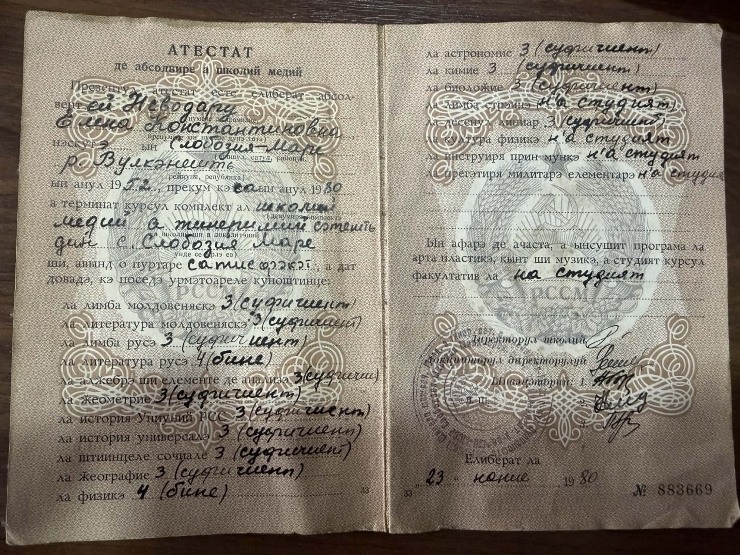 АТЕСТАТ
де абсолвире а школий медий
Презентул атестат есте елиберат абсол-
вент ей Неводару
Елена Константиновна
нэскут э ын Слобозия-Маре
р. Вулкэнешть
ын анул 1952, прекум кэ еа ын анул 1980
а терминат курсул комплект ал школий
медий а тинеримий сэтешть
дин с. Слобозия Маре
ши, авынд о пуртаре , а дат
довадэ, кэ поседэ урмэтоареле куноштинце:
ла лимба молдовеняскэ 3 (суфичиент)
ла литература молдовеняскэ 3 (суфичиент)
ла лимба русэ 3 (суфичиент)
ла литература русэ 4 (бине)
ла алжебрэ ши елементе де анализэ 3 (суфичи)
ла жеометрие 3 (суфичиент)
ла история Униуний РСС 3 (суфичиент)
ла история универсалэ 3 (суфичиент)
ла штиинцеле сочиале 3 (суфичиент)
ла жеографие 3 (суфичиент)
ла физикэ 4 (бине)
33
ла астрономие 3 (суфичиент)
ла химие 3 (суфичиент)
ла биоложие 3 (суфичиент)
ла лимба стрэинэ н'а студият
ла десенул линиар 3 (суфичиент)
ла култура физикэ н'а студият
ла инструиря прин мункэ н'а студият
ла прегэтиря милитарэ елементарэ н'а студия
Ын афарэ де ачаста, а ынсушит програма ла
арта пластикэ, кынт ши музикэ, а студият курсул
факултатив ла на студият
РССМ
Директорул школий
Локцииторул директорулуй
Ынвэцэторий: 1.
2.
Елиберат ла
„23" юние 1980
33
№ 883669